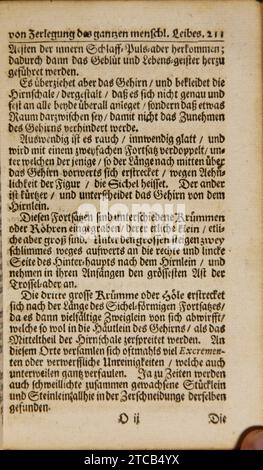 von Zerlegung des gantzen menschl. Leibes. 211
Aesten der innern Schlaff-Puls-ader herkommen;
dadurch dann das Geblüt und Lebens-geister herzu
geführet werden.
Es überziehet aber das Gehirn / und bekleidet die
Hirnschale / dergestalt / daß es sich nicht genau und
fest an alle beyde überall anleget / sondern daß etwas
Raum darzwischen sey / damit nicht das Zunehmen
des Gehirns verhindert werde.
Auswendig ist es rauch / innwendig glatt / und
wird mit einem zweyfachen Fortsatz verdoppelt / un-
ter welchen der jenige / so der Länge nach mitten über
das Gehirn vorwerts sich erstrecket / wegen Aehn-
lichkeit der Figur / die Sichel heisset. Der ander
ist kürtzer / und unterscheidet das Gehirn von dem
Hirnlein.
Diesen Fortsätzen sind unterschiedene Krümmen
oder Röhren eingegraben / deren etliche klein / etli-
che aber groß sind. Unter den grossen steigen zwey
schlimmes weges aufwerts an die rechte und lincke
Seite des Hinter-haupts nach dem Hirnlein / und
nehmen in ihren Anfängen den grössesten Ast der
Trossel-ader an.
Die dritte grosse Krümme oder Höle erstrecket
sich nach der Länge des Sichel-förmigen Fortsatzes /
da es dann vielfältige Zweiglein von sich abwirfft /
welche so wol in die Häutlein des Gehirns / als das
Mitteltheil der Hirnschale zerspreitet werden. An
diesem Orte versamlen sich offtmahls viel Excremen-
ten oder verwerffliche Unreinigkeiten / welche auch
unterweilen gantz verfaulen. Ja zu Zeiten werden
auch schweillichte zusammen gewachsene Stücklein
und Steinlein allhie in der Zerschneidunge derselben
gefunden.
O ij Die
alamy
Image ID: 2TCB4YX
www.alamy.com